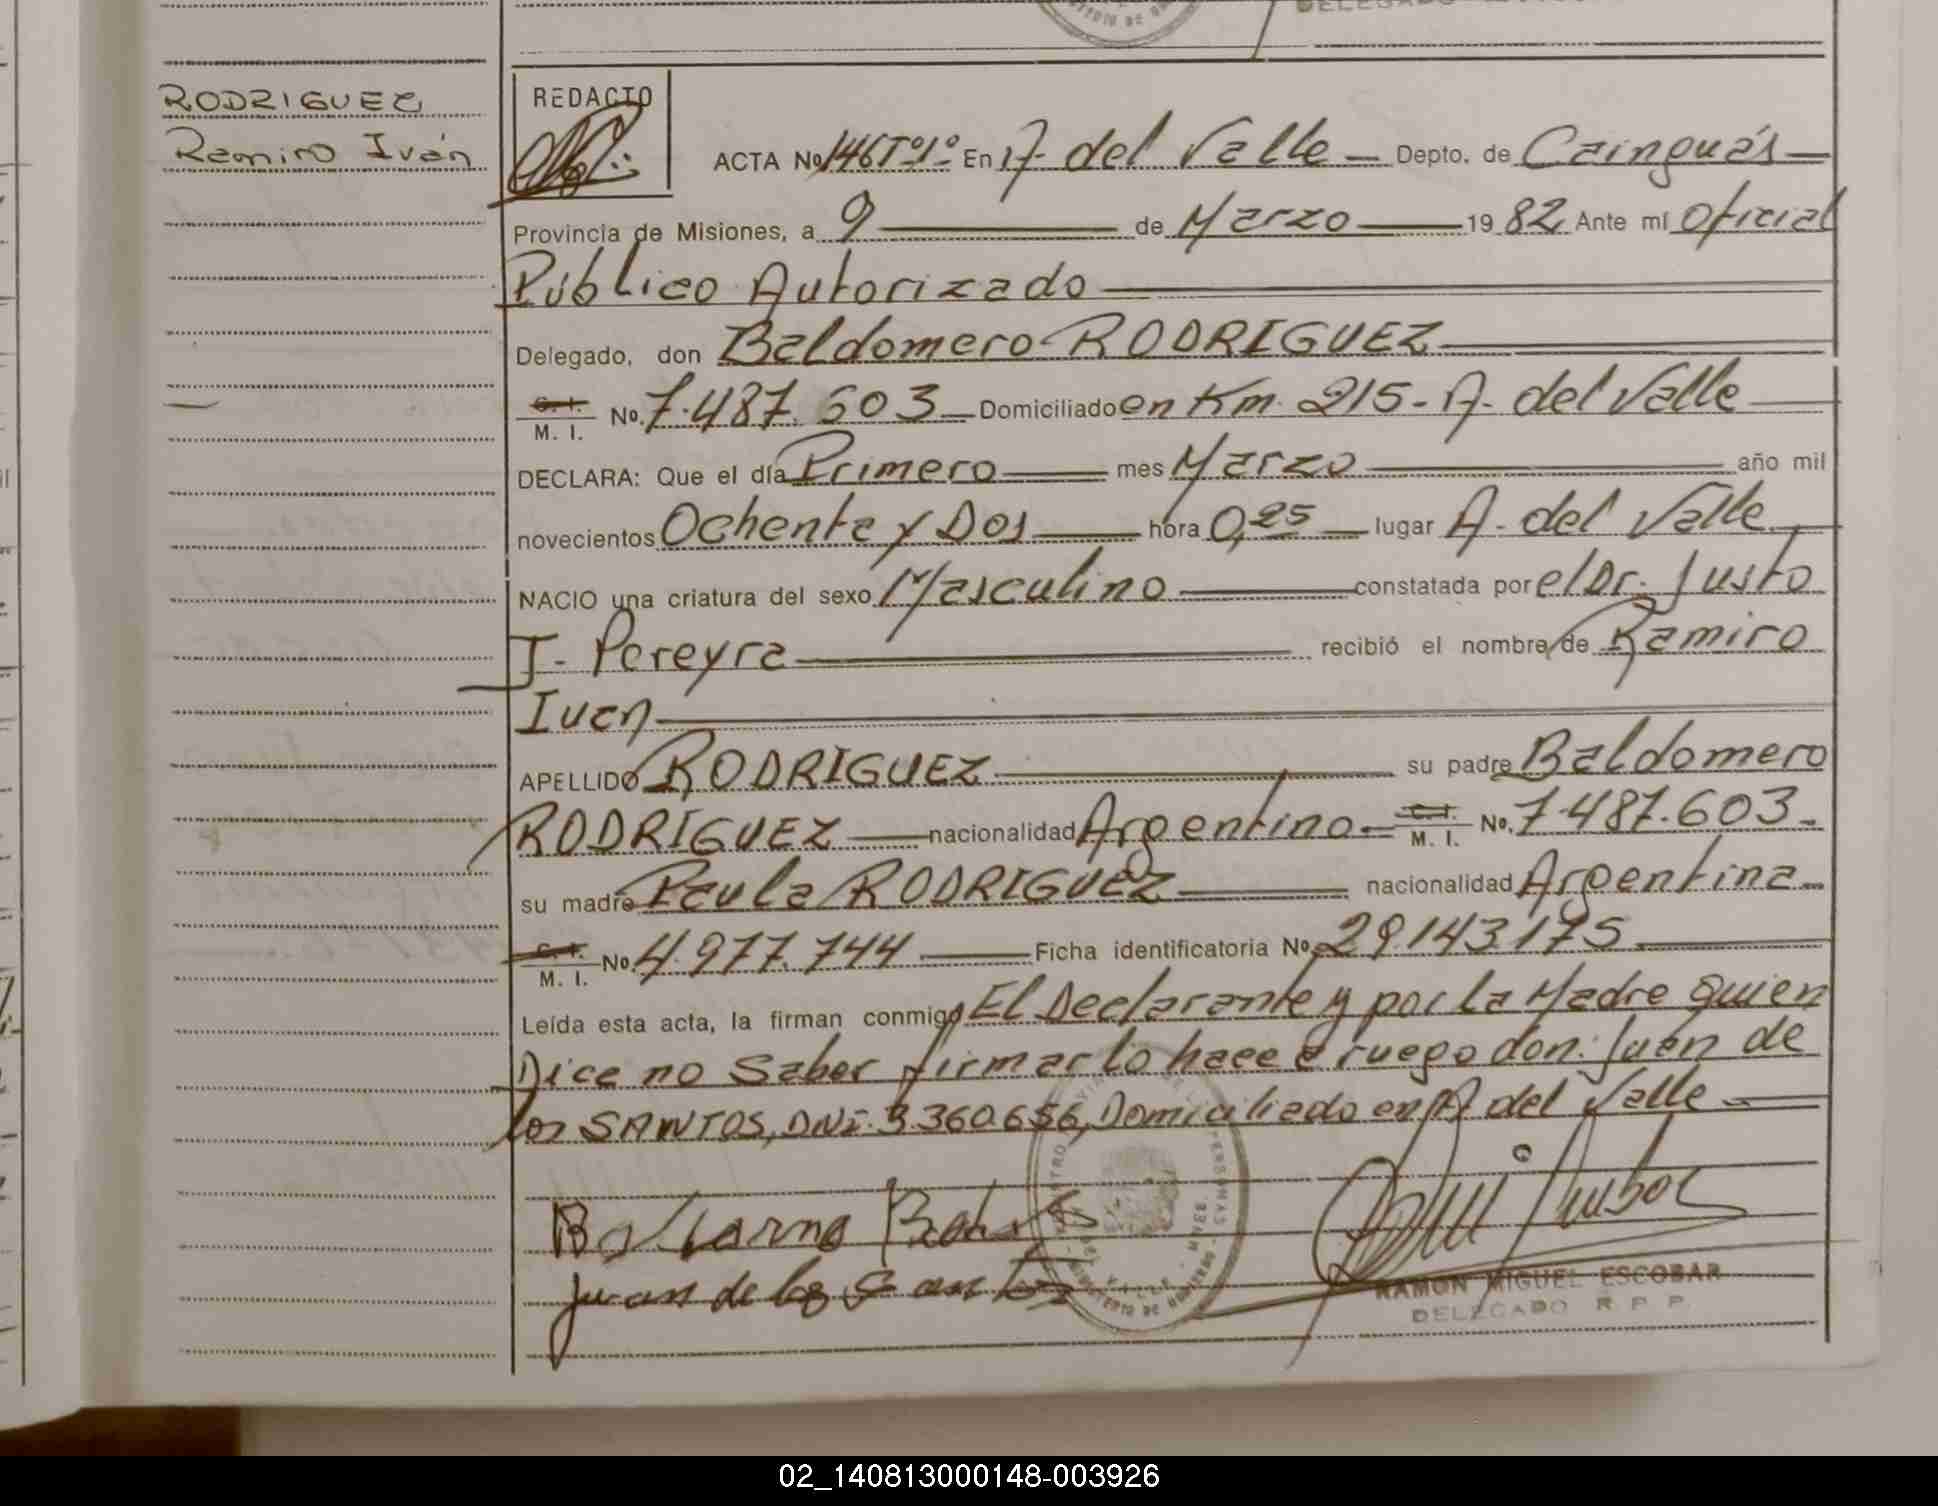 RODRIGUEZ
Ramiro Iván
REDACTO
ACTA No 146 Tº1º En A. del Valle Depto. de Cainguás
Provincia de Misiones, a 9 de Marzo 1982 Ante mí Oficial
Público Autorizado
Delegado, don Baldomero RODRIGUEZ
C. I. M. I. No. 7.487.603 Domiciliado en Km. 215 - A. del Valle
DECLARA: Que el día Primero mes Marzo año mil
novecientos Ochenta y Dos hora 0,25 lugar A. del Valle
NACIO una criatura del sexo Masculino constatada por el Dr. Justo
J. Pereyra recibió el nombre de Ramiro
Ivan
APELLIDO RODRIGUEZ su padre Baldomero
RODRIGUEZ nacionalidad Argentino C. I. M. I. No. 7.487.603.
su madre Paula RODRIGUEZ nacionalidad Argentina
C. I. M. I. No. 4.977.744 Ficha identificatoria No. 29.143.175
Leída esta acta, la firman conmigo El Declarante y por la Madre quien
Dice no Saber firmar lo hace a ruego don: Juan de
los SANTOS, DNI. 3.360.656, Domiciliado en A. del Valle
Juan de los Santos
RAMON MIGUEL ESCOBAR
DELEGADO R. P. P.
02_140813000148-003926